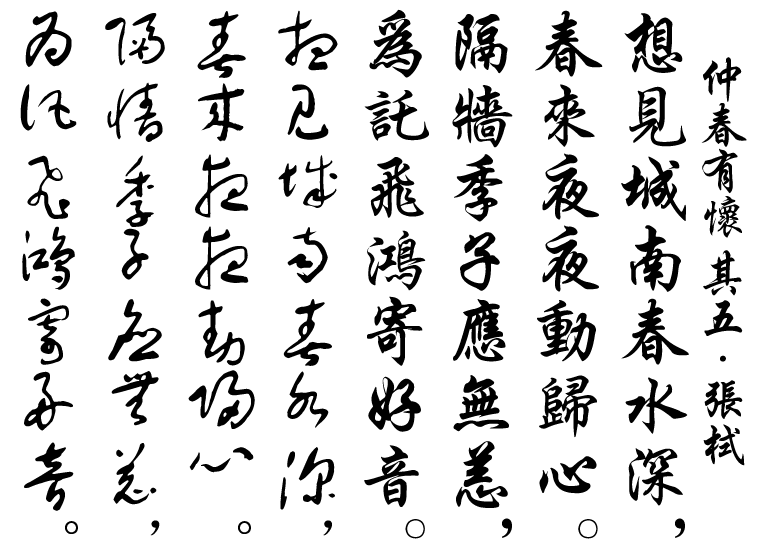 仲春有懷 其五·張栻
想見城南春水深，
春來夜夜動歸心。
隔牆季子應無恙，
爲託飛鴻寄好音。
想見城南春水深，
春來夜夜動歸心。
隔牆季子應無恙，
為託飛鴻寄好音。